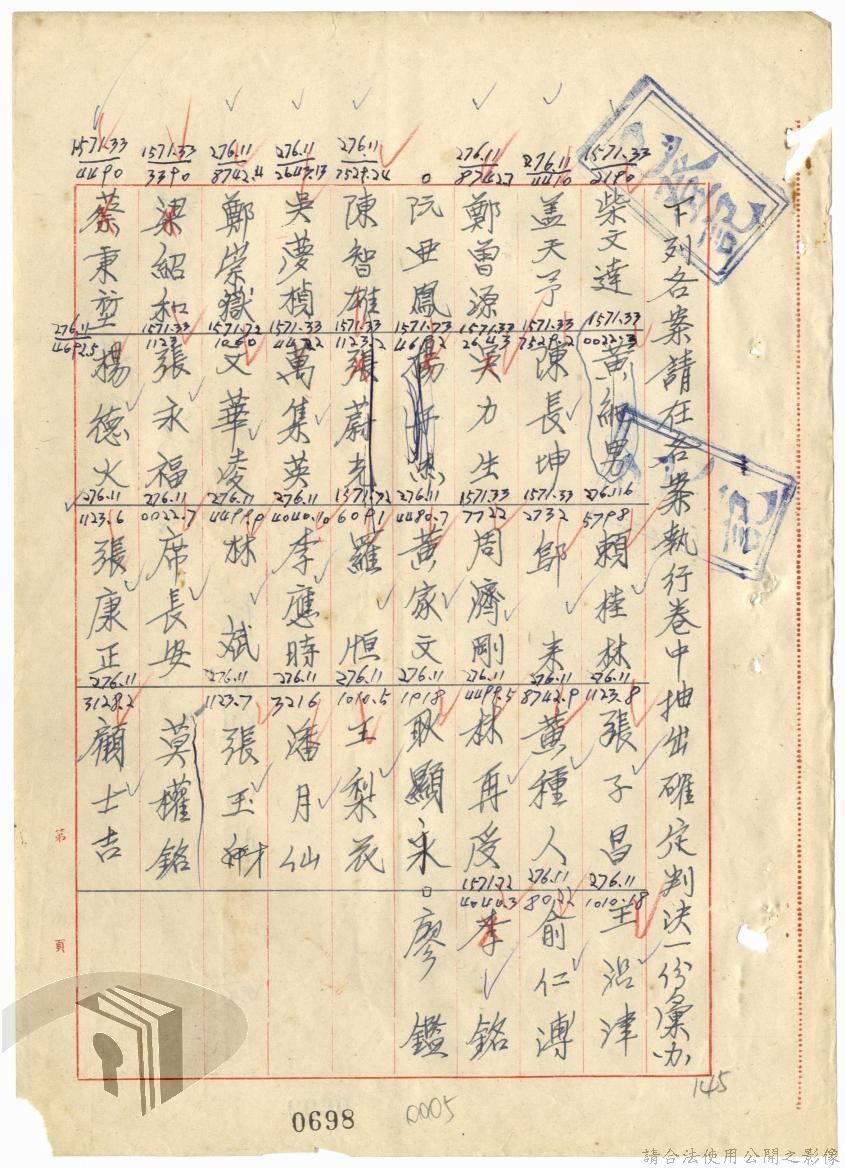 下列各案請在各案執行卷中抽出確定判決一份彙办
1571.33
2190
柴文達
1571.33
0022.3
黃細男
276.116
5798
賴桂林
276.11
1123.8
張子昌
276.11
1010.18
王沿津
276.11
4410
盖天予
1571.33
7529.2
陳長坤
1571.33
2732
鄔来
276.11
8742.9
黃種人
276.11
8022
俞仁溥
276.11
8742.7
鄭曾源
1571.33
2643
吳力生
1571.33
7722
周濟剛
276.11
4499.5
林再受
1571.72
4044.3
李銘
阮亜鳳
1571.73
4692
楊
276.11
4480.7
黃家文
276.11
1918
耿顯永
廖鑑
276.11
7529.24
陳智雄
1571.33
1123.2
張蔚光
1571.72
6091
羅恒
276.11
1010.5
王梨花
276.11
2643.13
吳夢楨
1571.33
4422
萬集英
276.11
4040.10
李應時
276.11
3216
潘月仙
276.11
8742.4
鄭崇嶽
1571.72
文華凌
276.11
4499.9
林斌
276.11
1123.7
張玉
1571.33
3390
梁紹和
1571.33
1123
張永福
276.11
0022.7
席長安
莫權銘
1571.33
4490
蔡秉堃
276.11
4692.5
楊德火
276.11
1123.6
張康正
276.11
3128.2
顧士吉
第
頁
145
0698
0005
請合法使用公開之影像